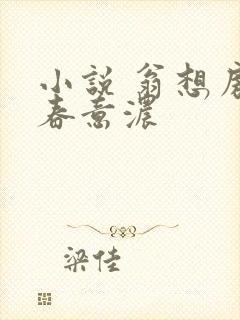 小説 翁想
春意濃
梁佳